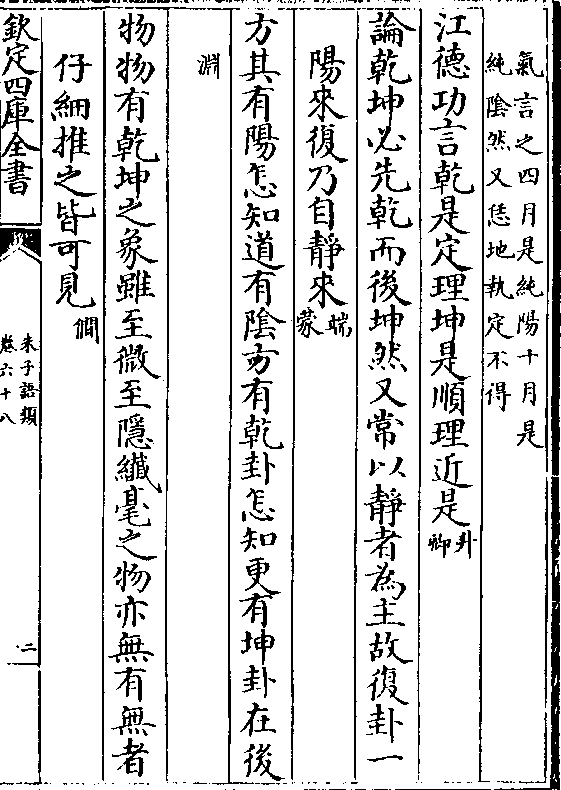 氣言之四月是純陽十月是
純陰然又恁地執定不得
江德功言乾是定理坤是順理近是升
卿
論乾坤必先乾而後坤然又常以靜者為主故復卦一
陽來復乃自靜來端
蒙
方其有陽怎知道有陰方有乾卦怎知更有坤卦在後
淵
物物有乾坤之象雖至微至隱纎毫之物亦無有無者
仔細推之皆可見僩
欽定四庫全書
朱子語類
卷六十八
二